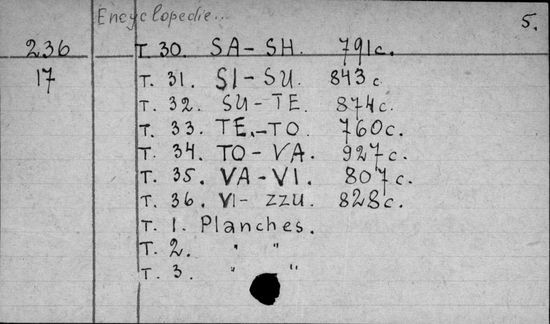 Encyclopedie.. 5.
236 T. 30. SA-SH. 791c.
17 T. 31. SI-SU. 843c
T. 32. SU-TE. 874c.
T. 33. TE.-TO. 760c.
T. 34. TO-VA. 927c.
T. 35. VA-VI. 807c.
T. 36. VI- ZZU. 828c.
T. 1. Planches.
T. 2. " "
T. 3. " "